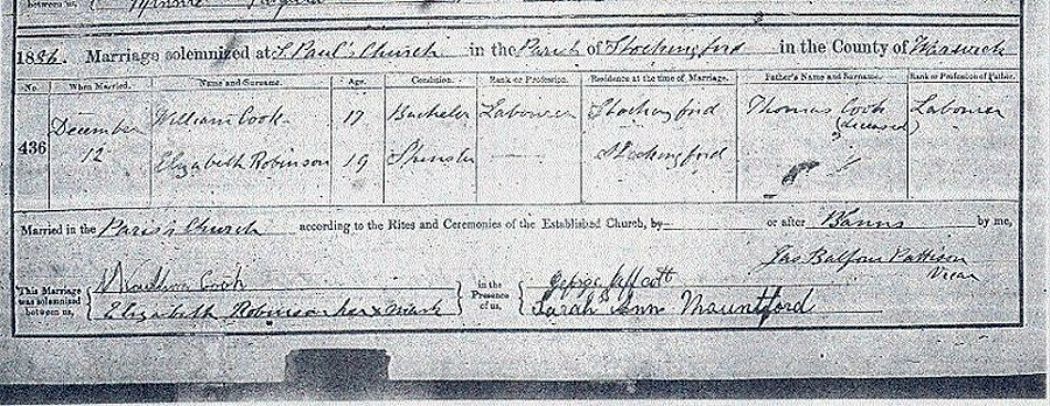 between us,
1886. Marriage solemnized at S. Paul's Church in the Parish of Stockingford in the County of Warwick
No. When Married. Name and Surname. Age. Condition. Rank or Profession. Residence at the time of Marriage. Father's Name and Surname. Rank or Profession of Father.
436 December 12 William Cook 17 Bachelor Labourer Stockingford Thomas Cook (deceased) Labourer
Elizabeth Robinson 19 Spinster Stockingford
Married in the Parish Church according to the Rites and Ceremonies of the Established Church, by or after Banns by me,
Jas Balfour Pattison
Vicar
This Marriage was solemnized between us, Cook in the Presence of us, George
Elizabeth Robinson her x mark Sarah Ann Mountford